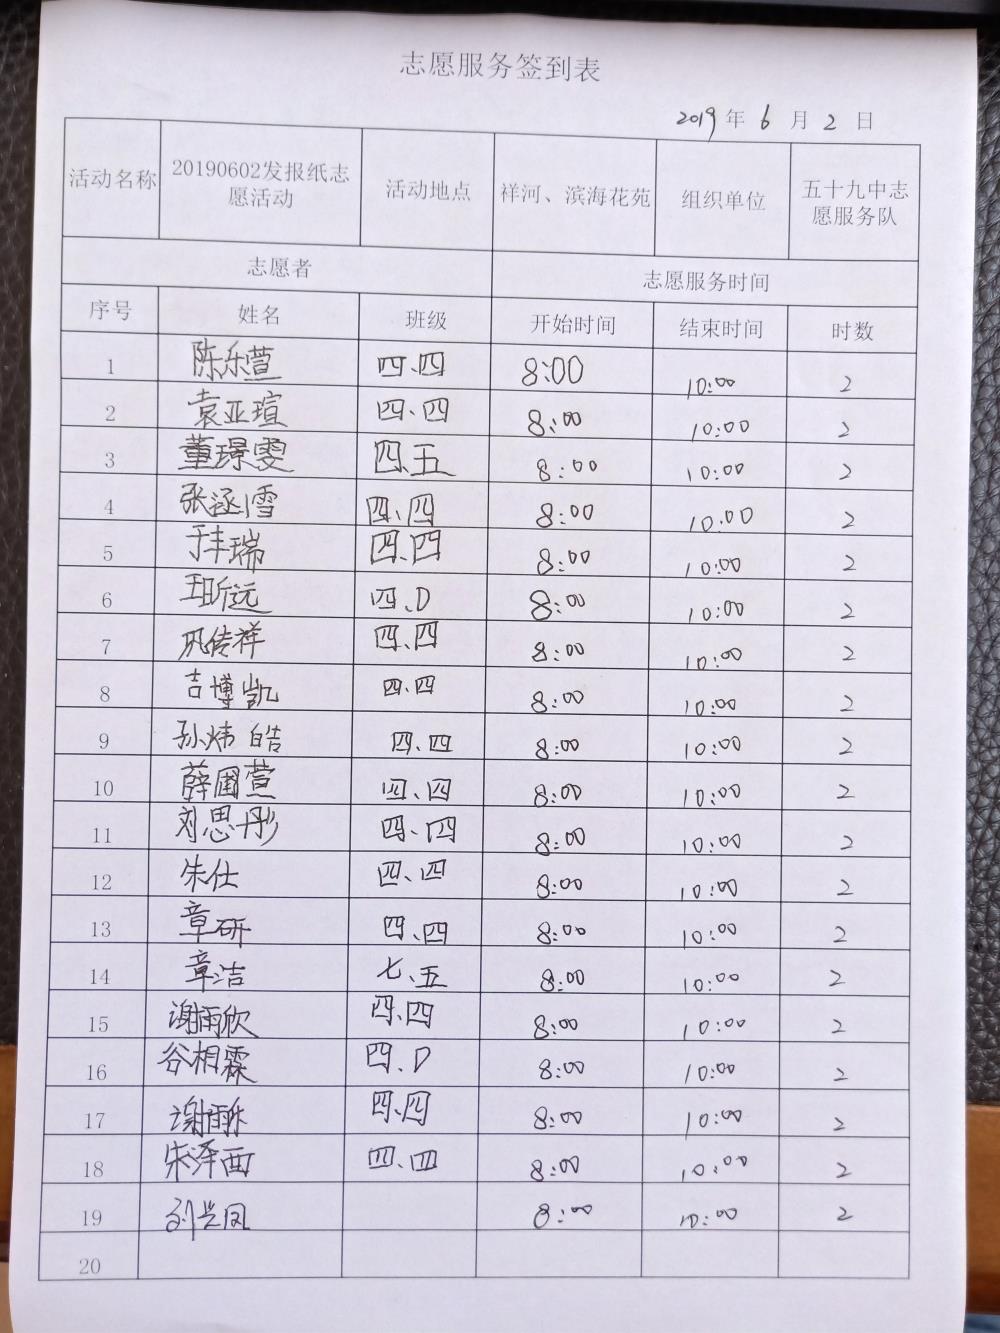 志愿服务签到表
2019 年 6 月 2 日
活动名称 20190602发报纸志愿活动 活动地点 祥河、滨海花苑 组织单位 五十九中志愿服务队
志愿者 志愿服务时间
序号 姓名 班级 开始时间 结束时间 时数
1 陈乐萱 四、四 8:00 10:00 2
2 袁亚瑄 四、四 8:00 10:00 2
3 董璟雯 四、五 8:00 10:00 2
4 张涵雪 四、四 8:00 10:00 2
5 于丰瑞 四、四 8:00 10:00 2
6 王昕远 四、D 8:00 10:00 2
7 巩传祥 四、四 8:00 10:00 2
8 吉博凯 四、四 8:00 10:00 2
9 孙炜皓 四、四 8:00 10:00 2
10 薛圃萱 四、四 8:00 10:00 2
11 刘思彤 四、四 8:00 10:00 2
12 朱仕 四、四 8:00 10:00 2
13 章研 四、四 8:00 10:00 2
14 章洁 七、五 8:00 10:00 2
15 谢雨欣 四、四 8:00 10:00 2
16 谷相霖 四、D 8:00 10:00 2
17 四、四 8:00 10:00 2
18 朱泽西 四、四 8:00 10:00 2
19 刘兰凤 8:00 10:00 2
20